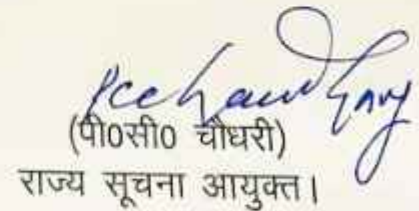 pcchaudhary
(पी0सी0 चौधरी)
राज्य सूचना आयुक्त।